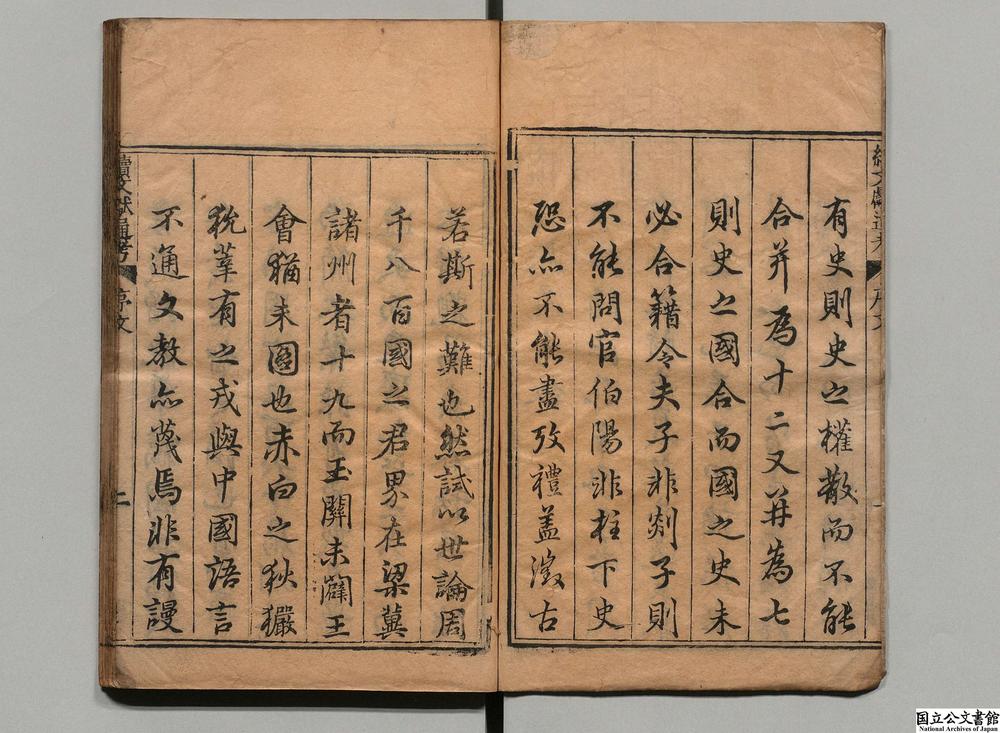 有史則史之權散而不能
合并為十二又并為七
則史之國合而國之史未
必合籍令夫子非郯子則
不能問官伯陽非柱下史
恐亦不能盡攷禮蓋徵古
若斯之難也然試以世論周
千八百國之君界在梁冀
諸州者十九而玉關未闢王
會猶未圖也赤白之狄玁
狁葷有之戎與中國語言
不通文教亦蔑焉非有謾
續文獻通考
序文
續文獻通考
序文
二
国立公文書館
National Archives of Japan